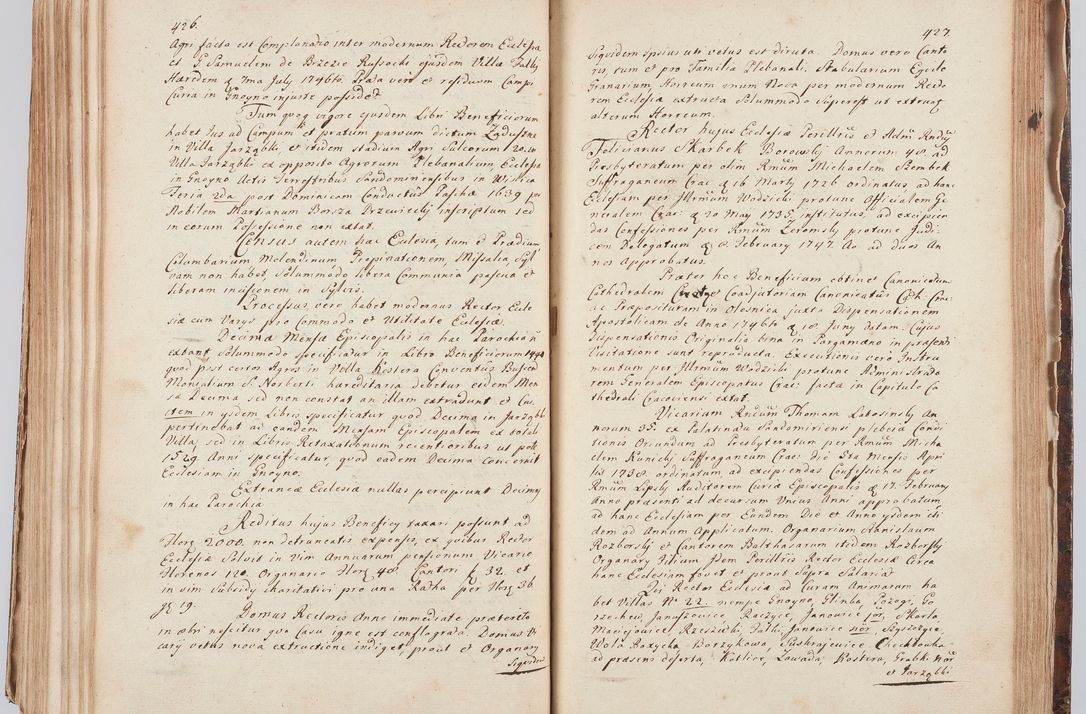 426.
Agri facta est Complanatio inter modernum Rectorem Ecclesiæ
et G. Samuelem de Brzezie Russocki ejusdem Villa
Hæredem 7ma July 1746to. Prata vero et residuum Campi
Curia in Gnoyno injuste possidet.
Tum quoq vigore ejusdem Libri Beneficiorum
habet Jus ad Campum et pratum parvum dictum Zaduszne
in Villa Jarząbki et ibidem stadium Agri Sulcorum 20. in
Villa Jarząbki ex opposito Agrorum Plebanalium Ecclesiæ
in Gnoyno Actis Terrestribus Sandomiriensibus in Wislica
Feria 2da post Dominicam Conductus Paschæ 1639 per
Nobilem Martianum Borsza Drzewiecky inscriptum sed
in eorum Possessione non extat.
Census autem hæc Ecclesia, tum et Prædium
Columbarium Molendinum Propinationem, Missalia Syl
vam non habet, solummodo libera Communia pascua et
liberam incisionem in Sylvis.
Processus vero habet modernus Rector Eccle
siæ cum Varys pro Commodo et Utilitate Ecclesiæ.
Decima Mensæ Episcopalis in hac Parochia n
extant Solummodo specificatur in Libro Beneficiorum 1440
quod post certos Agros in Villa Kostera Conventus Buscen
Monialium S. Norberti hæreditaria debetur eidem Men
sæ Decima sed non constat an illam extradunt et Cui
Item in ysdem Libris specificatur quod Decima in Jarząbki
pertinebat ad eandem Mensam Episcopalem ex tota
Villa, sed in Libris Retaxationum recentioribus ut pote
1529. Anni specificatur, quod eadem Decima concernit
Ecclesiam in Gnoyno.
Extraneæ Ecclesiæ nullas percipiunt Decimas
in hac Parochia
Reditus hujus Beneficy taxari possunt ad
Flor 2000. non detruncatis expensis, ex quibus Rector
Ecclesiæ Solvit in Vim Annuarum pensionum Vicario
Florenos 120 Organario Flor 40 Cantori f 32. et
in vim Subsidy charitativi pro una Ratha per Flor 36
gr 19.
Domus Rectoris Anno immediate præterito
in Cæbri nescitur quo Casu igne est conflagrata. Domus Vi
cary vetus nova extructione indiget, prout et Organary
Siquidem
427.
Siquidem ipsius uti vetus est diruta. Domus vero Canto
ris, tum et pro Familia Plebanali. Stabularium Equile
Granarium, Horreum unum Nova per modernum Recto
rem Ecclesiæ extructa Solummodo superest ut extruat
alterum Horreum.
Rector hujus Ecclesiæ Perillris et Admr Rndus
Felicianus Skarbek Borowsky Annorum 48. ad
Presbyteratum per olim Rmum Michaelem Szembek
Suffraganeum Crac 16 Marty 1726 ordinatus, ad hanc
Ecclesiam per Illrmum Wodzicki protunc Officialem Ge
neralem Crac: 20 May 1735. institutus, ad excipien
das Confessiones per Rmum Zeromsky protunc Judi
cem Delegatum 8. February 1747. Ao ad duos An
nos Approbatus.
Præter hoc Beneficium obtinet Canonicatum
Cathedralem et Coadjutoriam Canonicatus Cath. Crac.
ac Præposituram in Olesnica juxta Dispensationem
Apostolicam de Anno 1746to 18. Juny datam. Cujus
Dispensationis Originalia bina in Pargameno in præsenti
Visitatione sunt reproducta. Executionis vero Instru
mentum per Illrmum Wodzicki protunc Administrato
rem Generalem Episcopatus Crac: factæ in Capitulo Ca
thedrali Cracoviensi extat.
Vicarium Rndum Thomam Lotosinsky An
norum 35. ex Palatinatu Sandomiriensi plebeiæ Condi
tionis Oriundum ad Presbyteratum per Rmum Micha
elem Kunicky Suffraganeum Crac: die 5ta Mensis Apri
lis 1738. ordinatum, ad excipiendas Confessiones per
Rmum Lipsky Auditorem Curiæ Episcopalis 17. February
Anno præsenti ad decursum Unius Anni approbatum
ad hanc Ecclesiam per Eundem Die et Anno ysdem ibi
dem ad Annum Applicatum. Organarium Stanislaum
Rozborsky et Cantorem Balthasarum itidem Rozborsky
Organary Filium Idem Perillris Rector Ecclesiæ Circa
hanc Ecclesiam fovet et prout Supra Salariat.
Rector Ecclesiæ ad Curam Animarum ha
bet Villas No 22. nempe Gnoyno Glinka, Pozogi, Go
rzechow, Januszowice Raczyce, Janowice jor, Skorta
Maciejowice Rzesiutki, Falki, Janowice nor, Szyszczyce
Wola Bozycka, Borzykowa, Suskrajowice Chechtowka
ad præsens deserta, Kotlice, Zawada, Kostera, Grabki nor
et Jarząbki